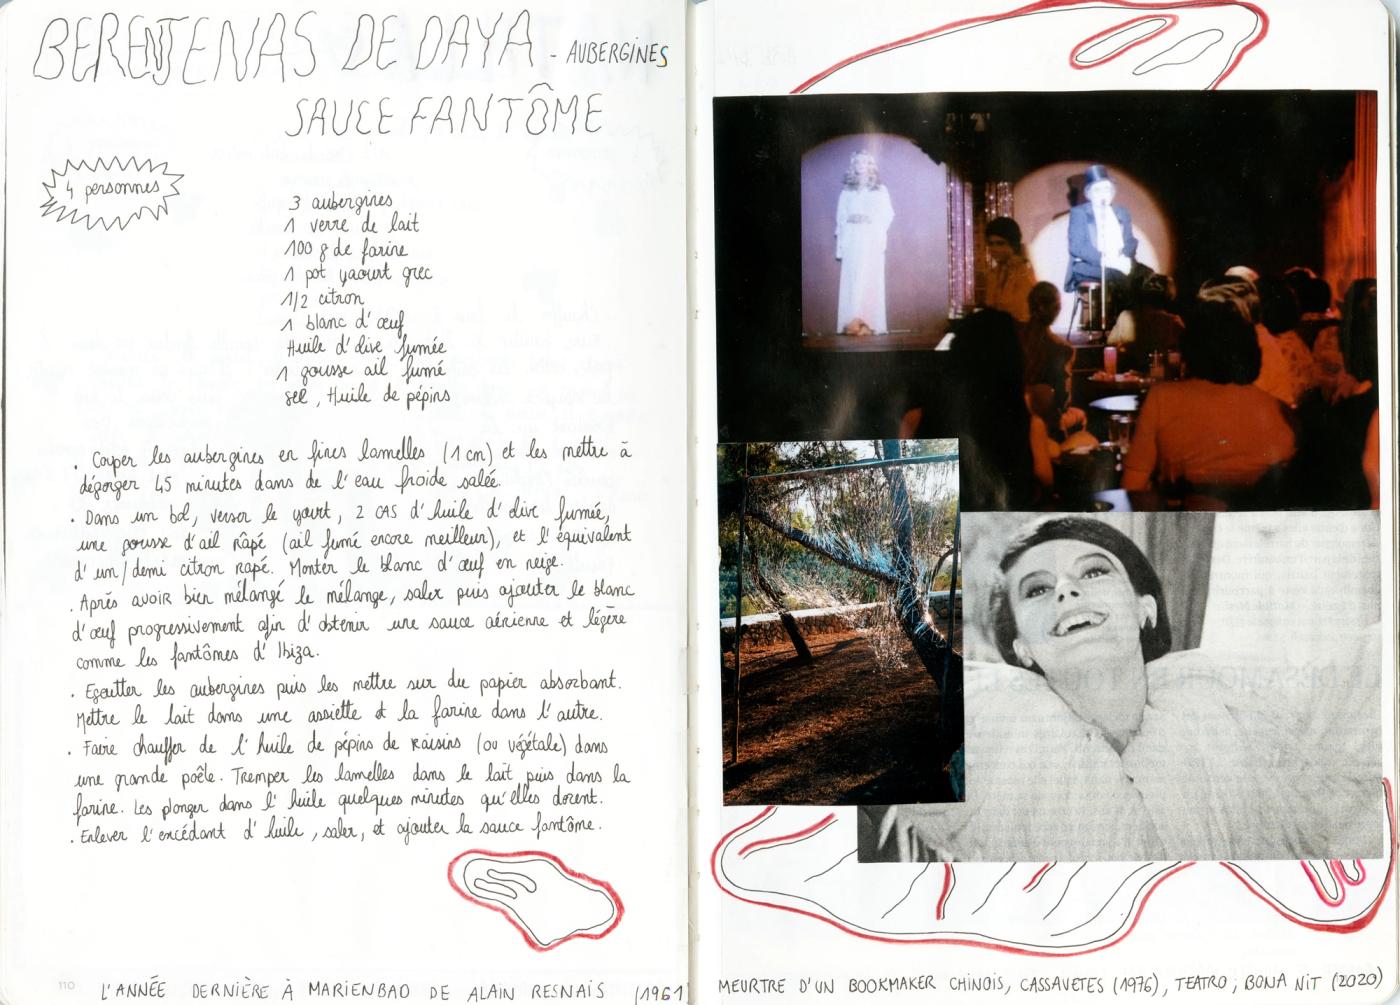 BERENJENAS DE DAYA - AUBERGINES
SAUCE FANTÔME
4 personnes
3 aubergines
1 verre de lait
100 g de farine
1 pot yaourt grec
1/2 citron
1 blanc d'œuf
Huile d'olive fumée
1 gousse ail fumé
sel, Huile de pépins
. Couper les aubergines en fines lamelles (1 cm) et les mettre à
dégorger 45 minutes dans de l'eau froide salée.
. Dans un bol, verser le yaourt, 2 CAS d'huile d'olive fumée,
une gousse d'ail râpé (ail fumé encore meilleur), et l'équivalent
d'un/demi citron rapé. Monter le blanc d'œuf en neige.
. Après avoir bien mélangé le mélange, saler puis ajouter le blanc
d'œuf progressivement afin d'obtenir une sauce aérienne et légère
comme les fantômes d'Ibiza.
. Egoutter les aubergines puis les mettre sur du papier absorbant.
Mettre le lait dans une assiette et la farine dans l'autre.
. Faire chauffer de l'huile de pépins de raisins (ou végétale) dans
une grande poêle. Tremper les lamelles dans le lait puis dans la
farine. Les plonger dans l'huile quelques minutes qu'elles dorent.
. Enlever l'encédant d'huile, saler, et ajouter la sauce fantôme.
110
L'ANNÉE DERNIÈRE À MARIENBAD DE ALAIN RESNAIS (1961
MEURTRE D'UN BOOKMAKER CHINOIS, CASSAVETES (1976), TEATRO ; BONA NIT (2020)